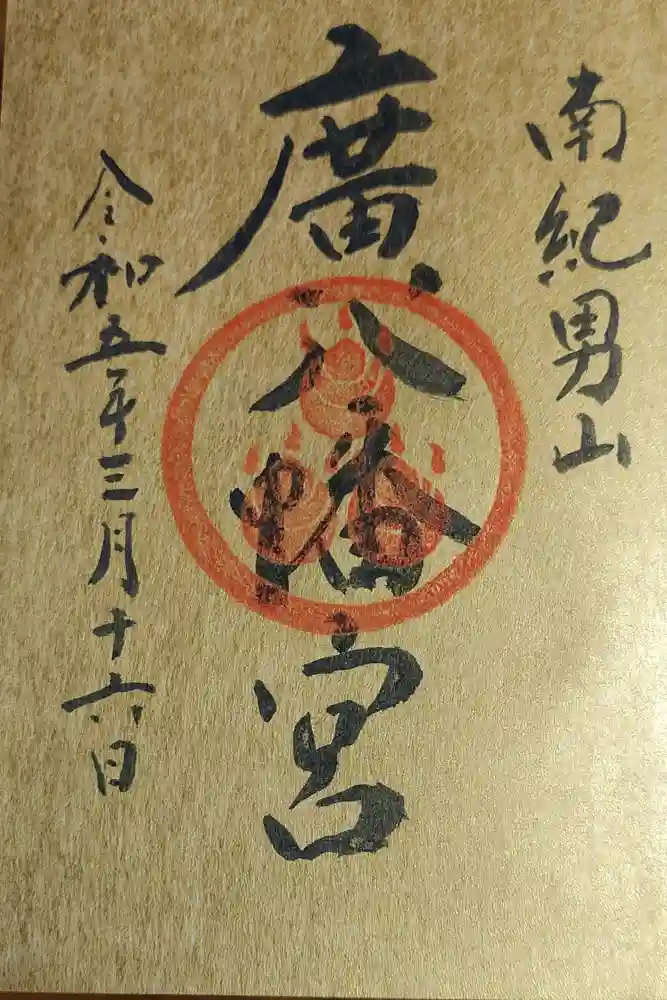 南紀男山
廣八幡宮
令和五年三月十六日